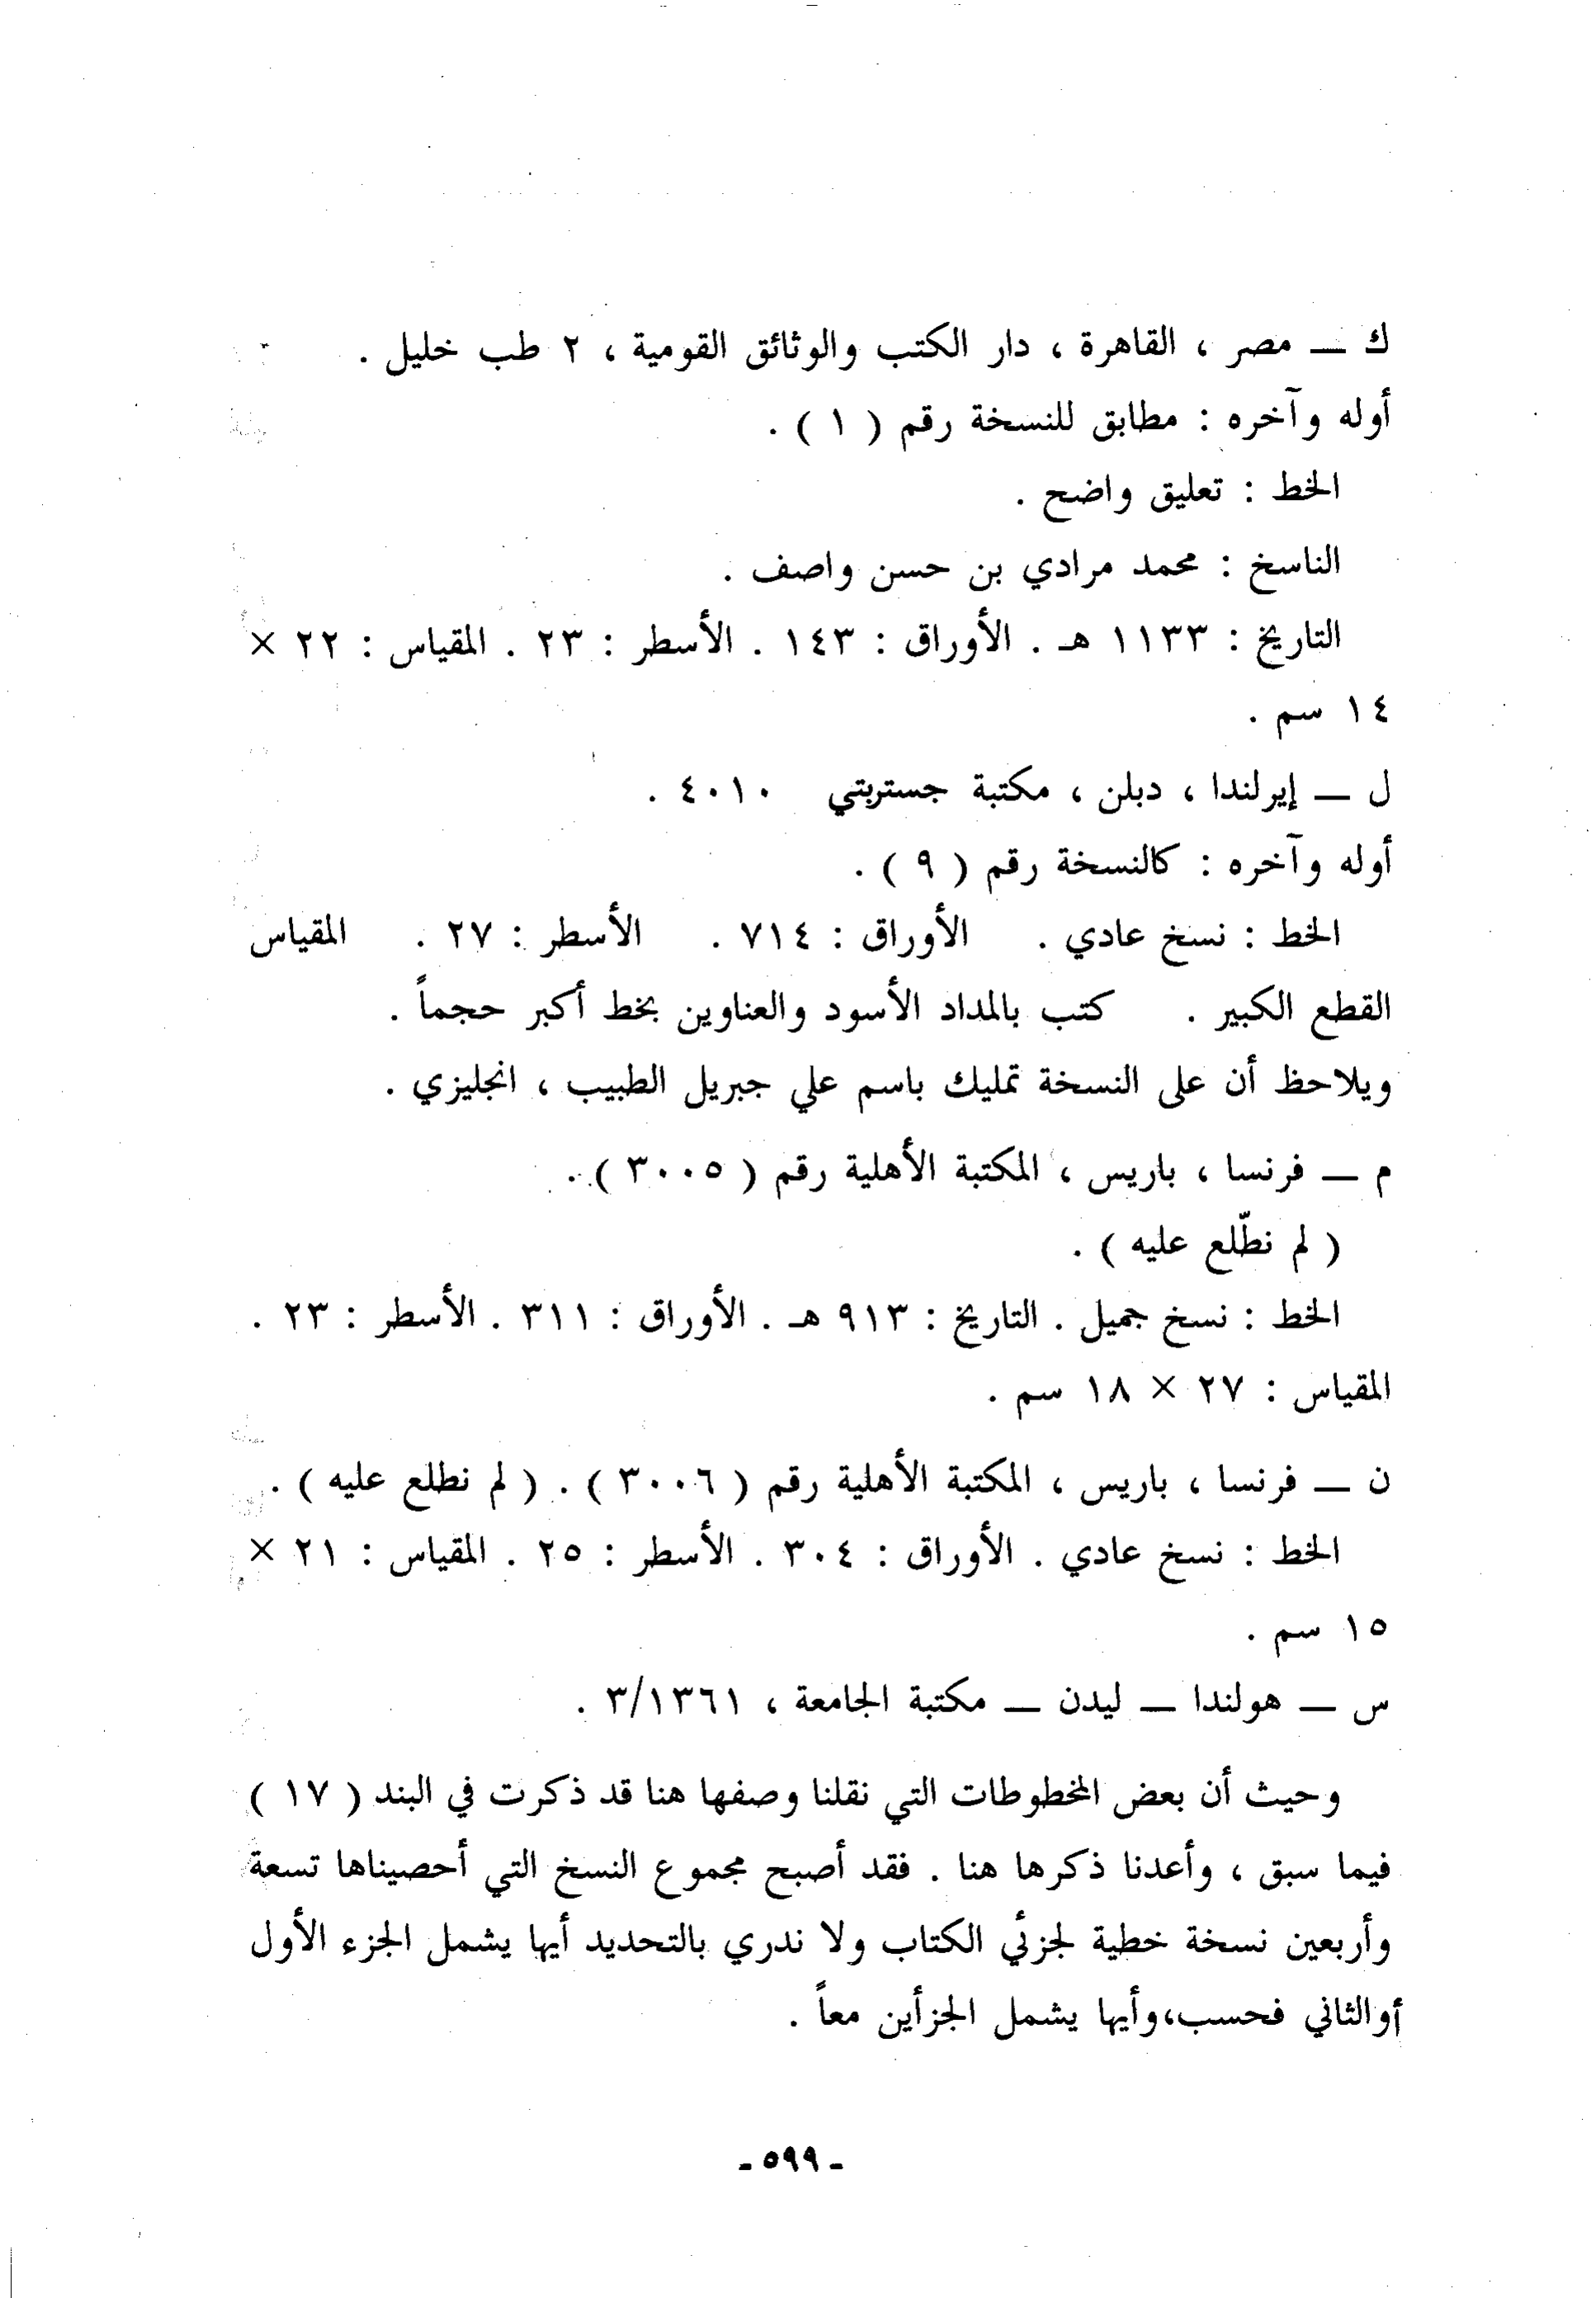 ك ــ مصر ، القاهرة ، دار الكتب والوثائق القومية ، ٢ طب خليل .
أوله وآخره : مطابق للنسخة رقم ( ١ ) .
الخط : تعليق واضح .
الناسخ : محمد مرادي بن حسن واصف .
التاريخ : ١١٣٣ هـ . الأوراق : ١٤٣ . الأسطر : ٢٣ . المقياس : ٢٢ ×
١٤ سم .
ل ــ إيرلندا ، دبلن ، مكتبة جستربتي ٤٠١٠ .
أوله وآخره : كالنسخة رقم ( ٩ ) .
الخط : نسخ عادي . الأوراق : ٧١٤ . الأسطر : ٢٧ . المقياس
القطع الكبير . كتب بالمداد الأسود والعناوين بخط أكبر حجماً .
ويلاحظ أن على النسخة تمليك باسم علي جبريل الطبيب ، انجليزي .
م ــ فرنسا ، باريس ، المكتبة الأهلية رقم ( ٣٠٠٥ ) .
( لم نطّلع عليه ) .
الخط : نسخ جميل . التاريخ : ٩١٣ هـ . الأوراق : ٣١١ . الأسطر : ٢٣ .
المقياس : ٢٧ × ١٨ سم .
ن ــ فرنسا ، باريس ، المكتبة الأهلية رقم ( ٣٠٠٦ ) . ( لم نطلع عليه ) .
الخط : نسخ عادي . الأوراق : ٣٠٤ . الأسطر : ٢٥ . المقياس : ٢١ ×
١٥ سم .
س ــ هولندا ــ ليدن ــ مكتبة الجامعة ، ٣/١٣٦١ .
وحيث أن بعض المخطوطات التي نقلنا وصفها هنا قد ذكرت في البند ( ١٧ )
فيما سبق ، وأعدنا ذكرها هنا . فقد أصبح مجموع النسخ التي أحصيناها تسعة
وأربعين نسخة خطية لجزئي الكتاب ولا ندري بالتحديد أيها يشمل الجزء الأول
أوالثاني فحسب،وأيها يشمل الجزأين معاً .
- ٥٩٩ -